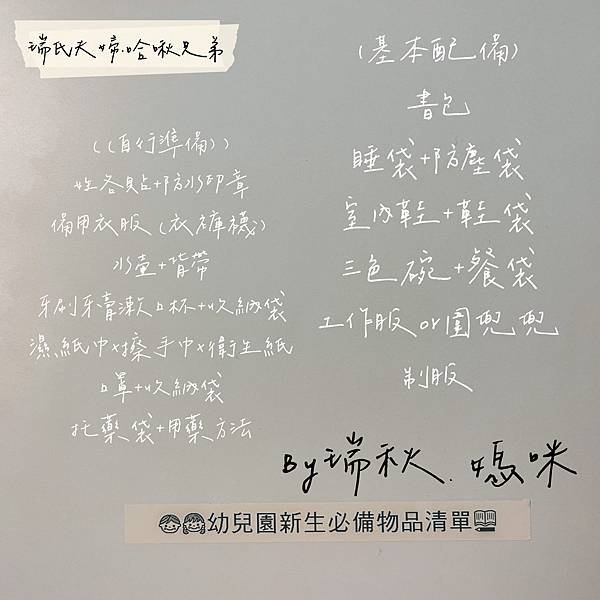 瑞氏夫婦.哈啾兄弟
((自行準備))
姓名貼+防水印章
備用衣服(衣褲襪)
水壺+背帶
牙刷牙膏漱口杯+收納袋
濕紙巾x擦手巾x衛生紙
口罩+收納袋
托藥袋+用藥方法
(基本配備)
書包
睡袋+防塵袋
室內鞋+鞋袋
三色碗+餐袋
工作服or圍兜兜
制服
By瑞秋.媽咪
👦👧幼兒園新生必備物品清單📖